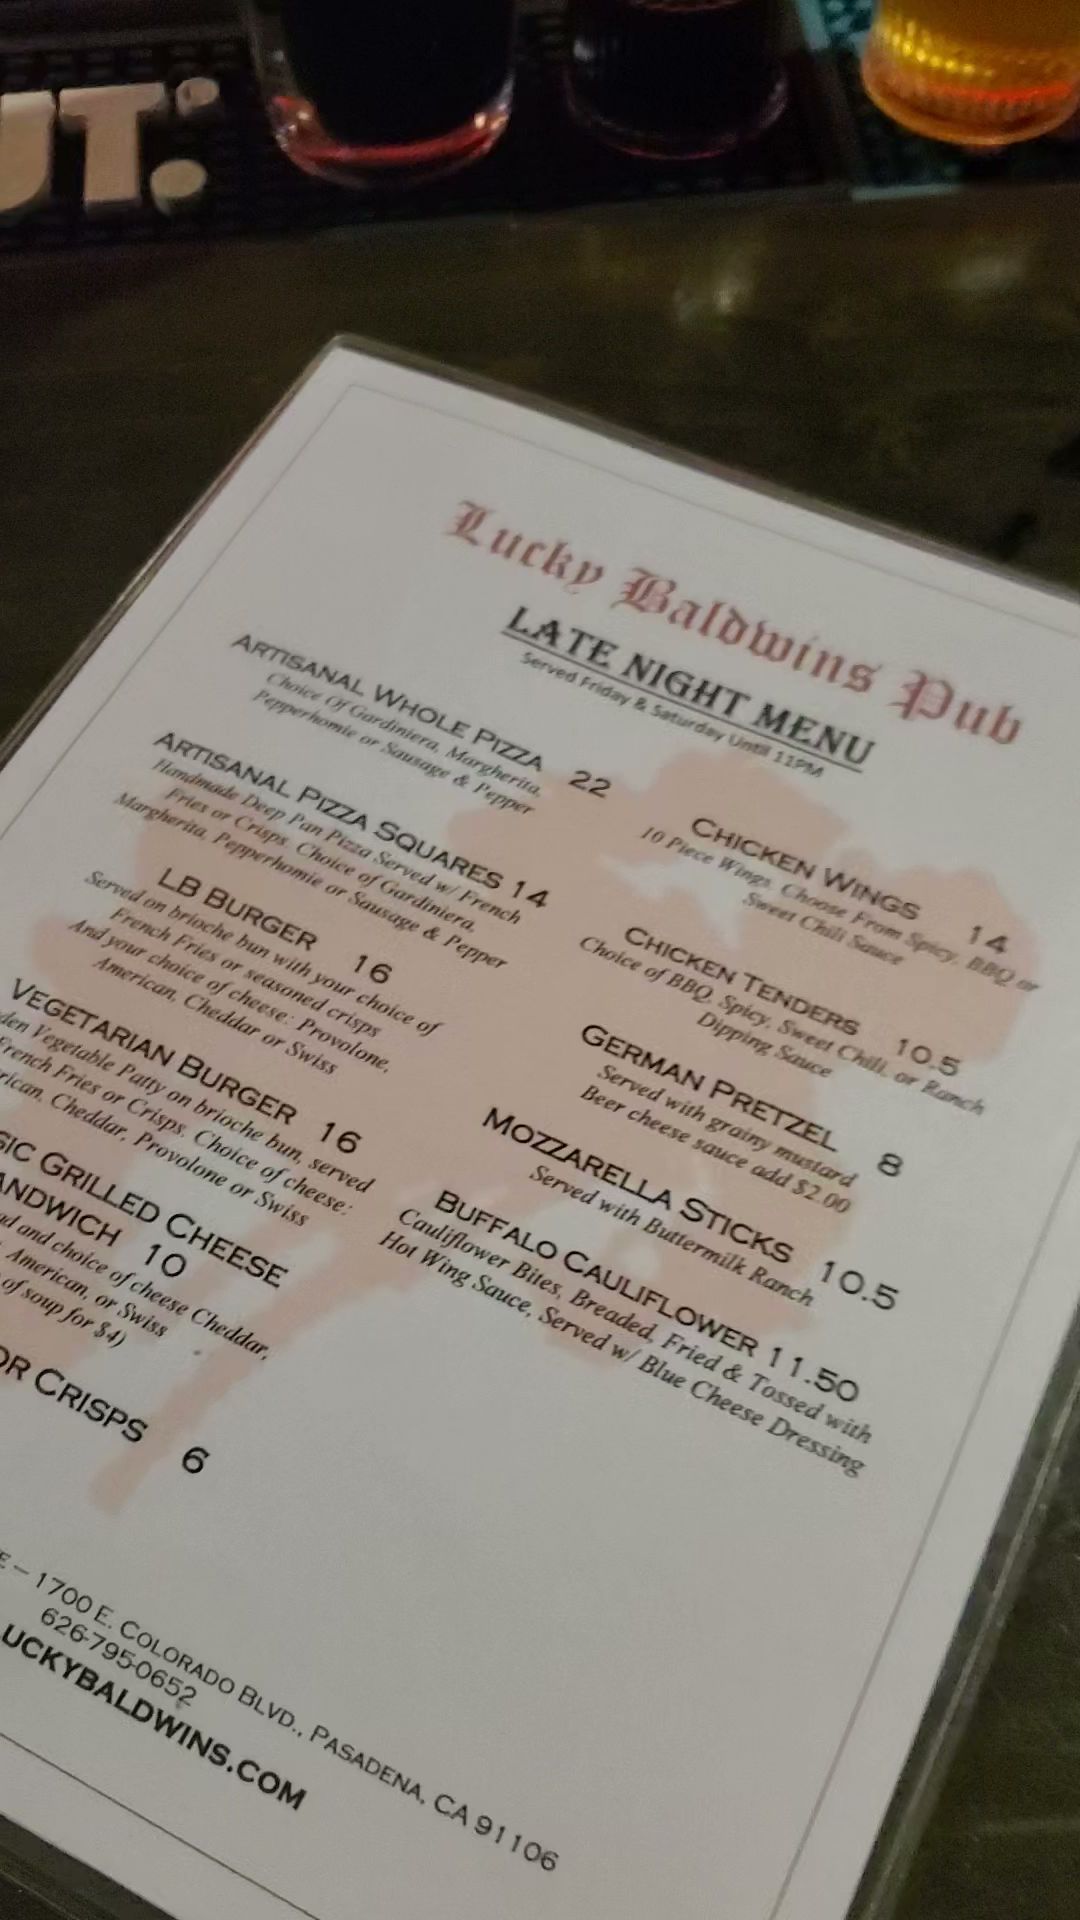 UT.
Lucky Baldwins Pub
LATE NIGHT MENU
Served Friday & Saturday Until 11PM
ARTISANAL WHOLE PIZZA 22
Choice Of Gardiniera, Margherita,
Pepperhomie or Sausage & Pepper
ARTISANAL PIZZA SQUARES 14
Handmade Deep Pan Pizza Served w/ French
Fries or Crisps. Choice of Gardiniera,
Margherita, Pepperhomie or Sausage & Pepper
LB BURGER 16
Served on brioche bun with your choice of
French Fries or seasoned crisps
And your choice of cheese: Provolone,
American, Cheddar or Swiss
VEGETARIAN BURGER 16
Vegetable Patty on brioche bun, served
French Fries or Crisps. Choice of cheese:
Cheddar, Provolone or Swiss
GRILLED CHEESE
10
and choice of cheese Cheddar,
American, or Swiss
of soup for $4)
OR CRISPS 6
CHICKEN WINGS 14
10 Piece Wings. Choose From Spicy, BBQ or
Sweet Chili Sauce
CHICKEN TENDERS 10.5
Choice of BBQ, Spicy, Sweet Chili, or Ranch
Dipping Sauce
GERMAN PRETZEL 8
Served with grainy mustard
Beer cheese sauce add $2.00
MOZZARELLA STICKS 10.5
Served with Buttermilk Ranch
BUFFALO CAULIFLOWER 11.50
Cauliflower Bites, Breaded, Fried & Tossed with
Hot Wing Sauce, Served w/ Blue Cheese Dressing
– 1700 E. COLORADO BLVD., PASADENA, CA 91106
626-795-0652
UCKYBALDWINS.COM